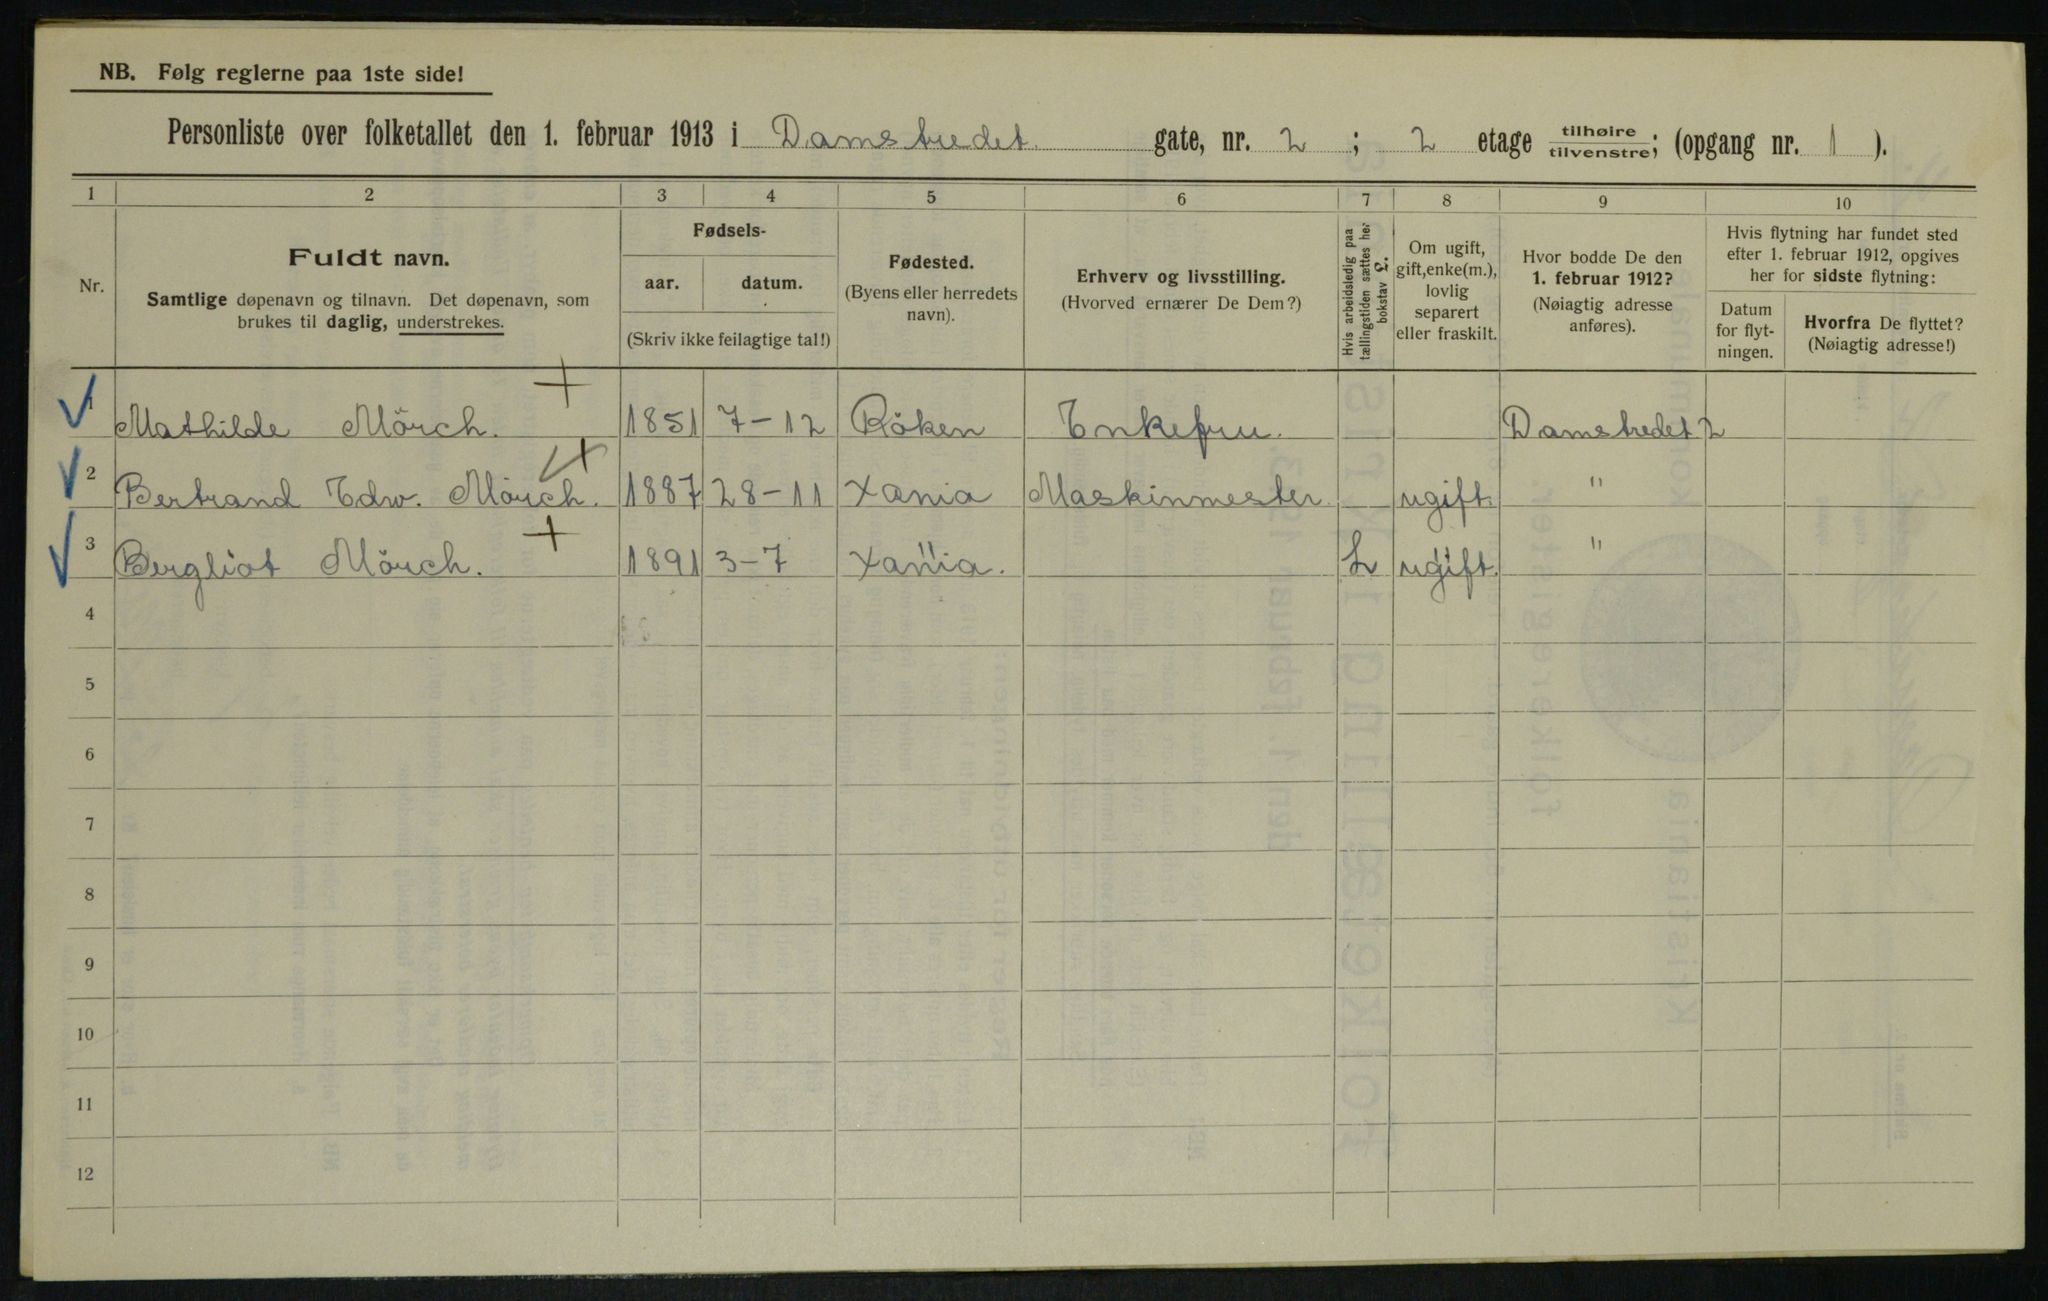 NB. Følg reglerne paa 1ste side!
Personliste over folketallet den 1. februar 1913 i Damstredet gate, nr. 2 ; 2 etage tilhøire tilvenstre; (opgang nr. 1 ).
1 2 3 4 5 6 7 8 9 10
Nr.
Fuldt navn.
Samtlige døpenavn og tilnavn. Det døpenavn, som
brukes til daglig, understrekes.
Fødsels-
aar. datum.
(Skriv ikke feilagtige tal!)
Fødested.
(Byens eller herredets
navn).
Erhverv og livsstilling.
(Hvorved ernærer De Dem?)
Hvis arbeidsledig paa
tællingstiden sættes her
bokstav L.
Om ugift,
gift, enke(m.),
lovlig
separert
eller fraskilt.
Hvor bodde De den
1. februar 1912?
(Nøiagtig adresse
anføres).
Hvis flytning har fundet sted
efter 1. februar 1912, opgives
her for sidste flytning:
Datum
for flyt-
ningen.
Hvorfra De flyttet?
(Nøiagtig adresse!)
1 Mathilde Mörch. 1851 7-12 Röken Enkefru. Damstredet 2
2 Bertrand Edw. Mörch. 1887 28-11 Xania Maskinmester ugift. "
3 Bergliot Mörch. 1891 3-7 Xania. L ugift. "
4
5
6
7
8
9
10
11
12